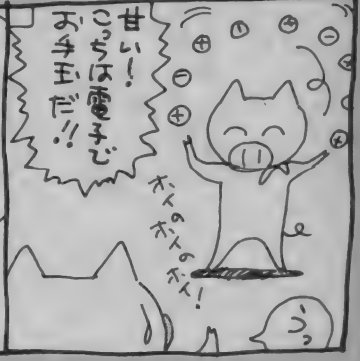 甘い!
こっちは電子で
お手玉だ!!
ホイのホイのホイ!
うっ